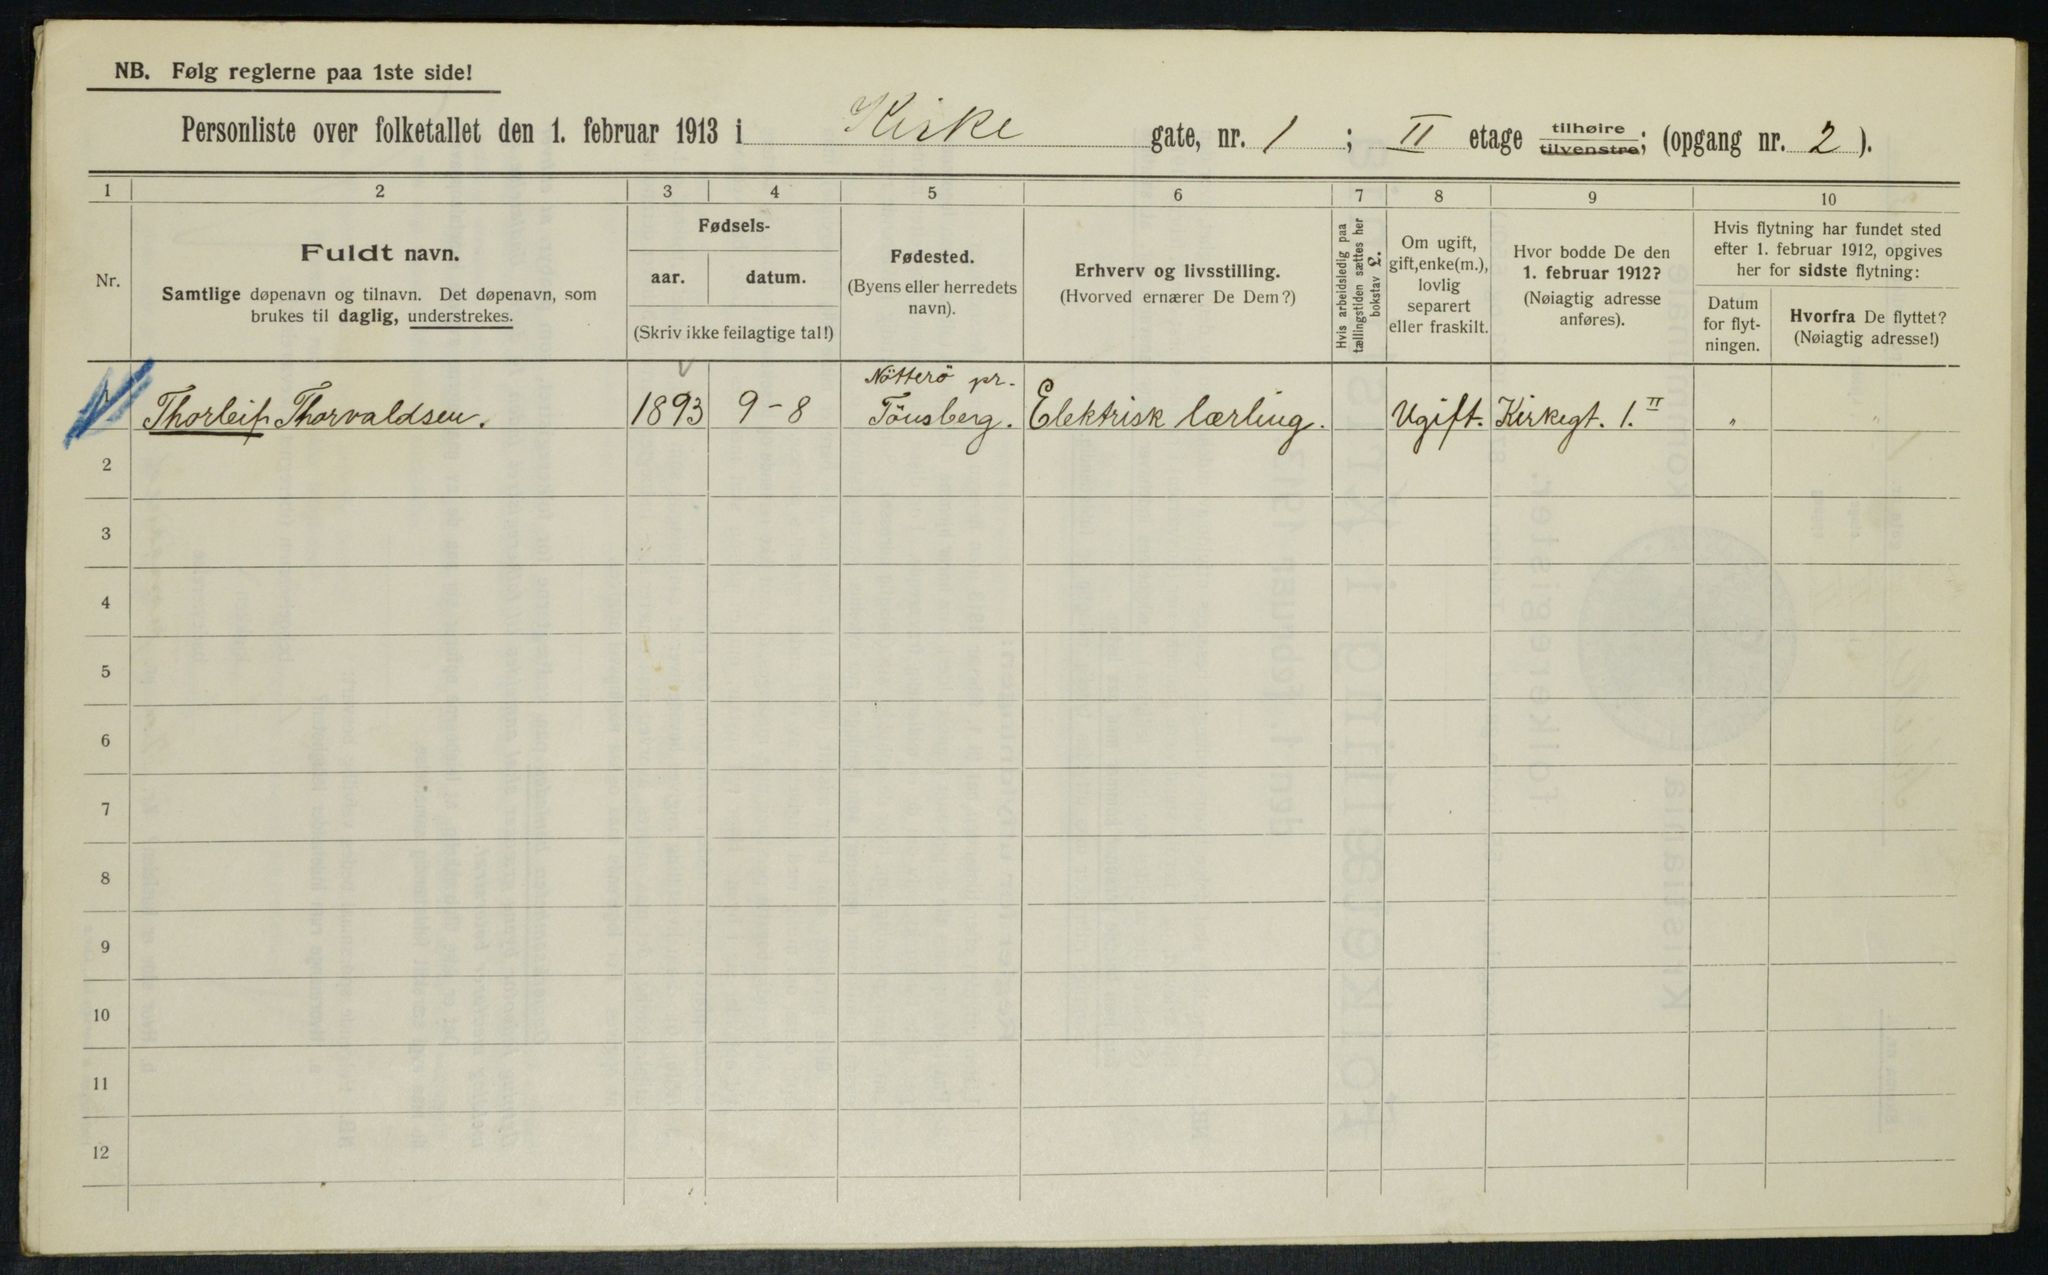 NB. Følg reglerne paa 1ste side!
Personliste over folketallet den 1. februar 1913 i Kirke gate, nr. 1 ; II etage tilhøire tilvenstre; (opgang nr. 2 ).
1 2 3 4 5 6 7 8 9 10
Nr.
Fuldt navn.
Samtlige døpenavn og tilnavn. Det døpenavn, som
brukes til daglig, understrekes.
Fødsels-
aar. datum.
(Skriv ikke feilagtige tal!)
Fødested.
(Byens eller herredets
navn).
Erhverv og livsstilling.
(Hvorved ernærer De Dem?)
Hvis arbeidsledig paa
tællingstiden sættes her
bokstav L.
Om ugift,
gift, enke(m.),
lovlig
separert
eller fraskilt.
Hvor bodde De den
1. februar 1912?
(Nøiagtig adresse
anføres).
Hvis flytning har fundet sted
efter 1. februar 1912, opgives
her for sidste flytning:
Datum
for flyt-
ningen.
Hvorfra De flyttet?
(Nøiagtig adresse!)
1 Thorleif Thorvaldsen. 1893 9-8 Nötterö pr. Tönsberg. Elektrisk lærling. Ugift. Kirkegt. 1. II " "
2
3
4
5
6
7
8
9
10
11
12